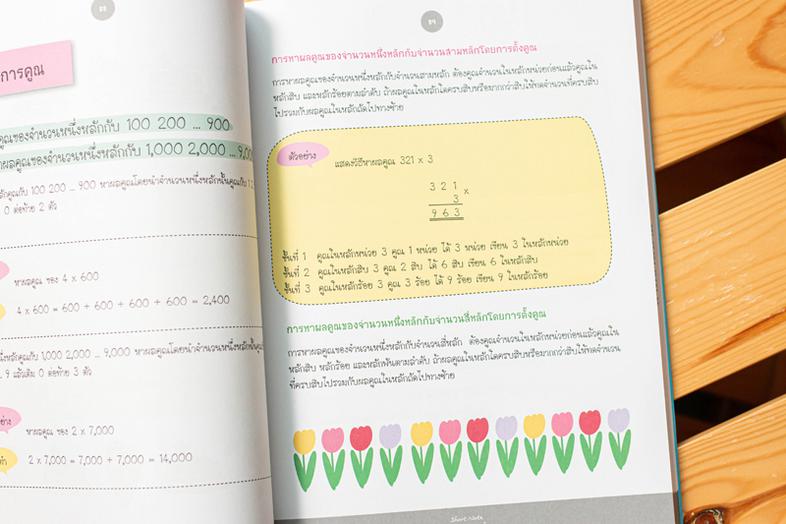 การคูณ
คูณของจำนวนหนึ่งหลักกับ 100 200 ... 900
ผลคูณของจำนวนหนึ่งหลักกับ 1,000 2,000 ... 9,00
หลักคูณกับ 100 200 ... 900 หาผลคูณโดยนำจำนวนหนึ่งหลักนั้นคูณกับ 1 2
0 ต่อท้าย 2 ตัว
หาผลคูณ ของ 4 x 600
4 x 600 = 600 + 600 + 600 + 600 = 2,400
หนึ่งหลักคูณกับ 1,000 2,000 ... 9,000 หาผลคูณโดยนำจำนวนหนึ่งหลักนั้นคูณ
9 แล้วเติม 0 ต่อท้าย 3 ตัว
หาผลคูณ ของ 2 x 7,000
2 x 7,000 = 7,000 + 7,000 = 14,000
การหาผลคูณของจำนวนหนึ่งหลักกับจำนวนสามหลักโดยการตั้งคูณ
การหาผลคูณของจำนวนหนึ่งหลักกับจำนวนสามหลัก ต้องคูณจำนวนในหลักหน่วยก่อนแล้วคูณใน
หลักสิบ และหลักร้อยตามลำดับ ถ้าผลคูณในหลักใดครบสิบหรือมากกว่าสิบให้ทดจำนวนที่ครบสิบ
ไปรวมกับผลคูณในหลักถัดไปทางซ้าย
ตัวอย่าง
แสดงวิธีหาผลคูณ 321 x 3
3 2 1 x
3
9 6 3
ขั้นที่ 1 คูณในหลักหน่วย 3 คูณ 1 หน่วย ได้ 3 หน่วย เขียน 3 ในหลักหน่วย
ขั้นที่ 2 คูณในหลักสิบ 3 คูณ 2 สิบ ได้ 6 สิบ เขียน 6 ในหลักสิบ
ขั้นที่ 3 คูณในหลักร้อย 3 คูณ 3 ร้อย ได้ 9 ร้อย เขียน 9 ในหลักร้อย
การหาผลคูณของจำนวนหนึ่งหลักกับจำนวนสี่หลักโดยการตั้งคูณ
การหาผลคูณของจำนวนหนึ่งหลักกับจำนวนสี่หลัก ต้องคูณจำนวนในหลักหน่วยก่อนแล้วคูณใน
หลักสิบ หลักร้อย และหลักพันตามลำดับ ถ้าผลคูณในหลักใดครบสิบหรือมากกว่าสิบให้ทดจำนวน
ที่ครบสิบไปรวมกับผลคูณในหลักถัดไปทางซ้าย
Short Note